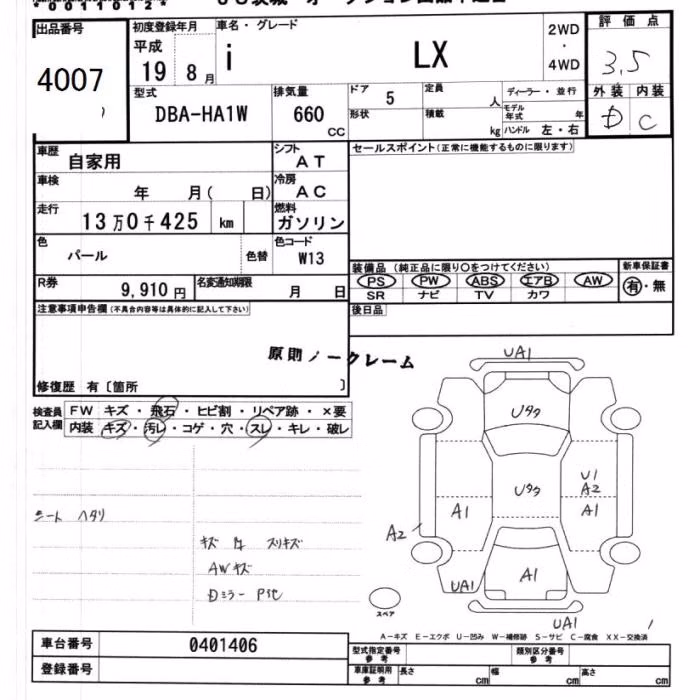 *00110112*
出品番号 初度登録年月 車名・グレード 2WD ・ 4WD 評価点
4007 平成 19 8月 i LX 3.5
型式 排気量 ドア 5 定員 人 ディーラー・並行 外装 内装
DBA-HA1W 660 CC 形状 積載 kg モデル年式 年 D C
ハンドル 左・右
車歴 自家用 シフト AT セールスポイント(正常に機能するものに限ります)
車検 年 月( 日) 冷房 AC
走行 13万0千425 km 燃料 ガソリン
色 パール 色替 色コード W13
装備品 (純正品に限り○をつけてください) 新車保証書
R券 9,910円 名変通知期限 月 日 PS PW ABS エアB AW 有・無
SR ナビ TV カワ
注意事項申告欄(不具合内容等は具体的に記入して下さい) 後日品
原則ノークレーム
修復歴 有〔箇所 〕
検査員記入欄 FW キズ・飛石・ヒビ割・リペア跡・×要
内装 キズ・汚レ・コゲ・穴・スレ・キレ・破レ
UA1
Uタタ
Uタタ
U1
A2
A1 A1
シート ヘタリ
A2
キズ 凹 スリキズ
AWキズ
A1
UA1
Dミラー
スペア
UA1
A-キズ E-エクボ U-凹み W-補修跡 S-サビ C-腐食 XX-交換済
車台番号 0401406 型式指定番号 参考 類別区分番号 参考
登録番号 車庫証明用 参考 長さ cm 幅 cm 高さ cm